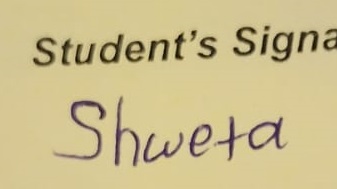 Student's Signa
Shweta